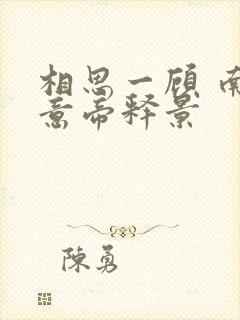 相思一顾 南
意帝释景
陳勇